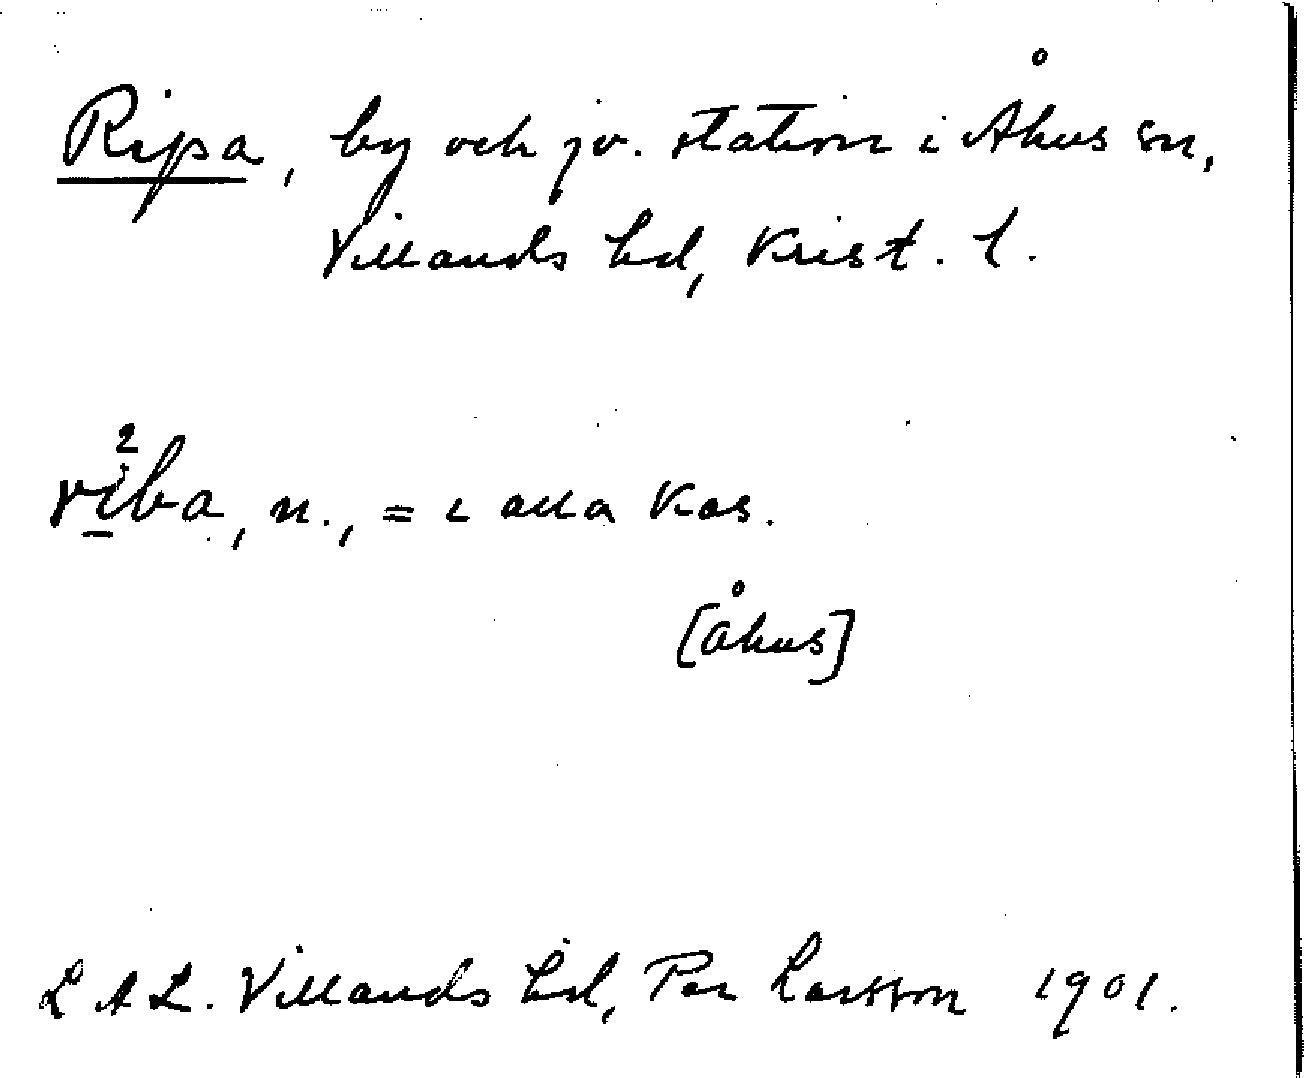 Ripa, by och jv. station i Åhus sn,
Villands hd, Krist. l.
ri²ba, n., = i alla kas.
[åhus]
LAL. Villands hd, Per Larsson 1901.